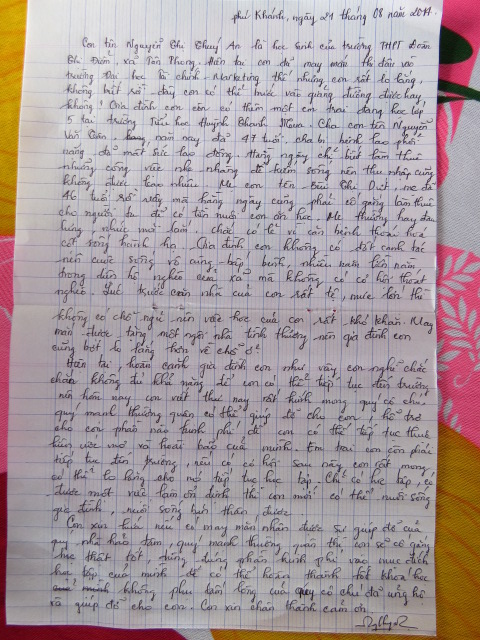 Phú Khánh, ngày 21 tháng 08 năm 2017.
Con tên Nguyễn Thị Thuý An là học sinh của trường THPT Đoàn
Thị Điểm, xã Tân Phong. Hiện tại con đã may mắn thi đậu vào
trường Đại học Tài chính - Marketing thế nhưng con rất lo lắng,
không biết rồi đây con có thể bước vào giảng đường được hay
không! Gia đình con còn có thêm một em trai đang học lớp
5 tại trường Tiểu học Huỳnh Thanh Mua. Cha con tên Nguyễn
Văn năm nay đã 47 tuổi. cha bị bệnh lao phổi
nặng đã mất sức lao động. Hàng ngày chỉ biết làm thuê
những công việc nhẹ nhàng để kiếm sống nên thu nhập cũng
không được bao nhiêu. Mẹ con tên Bùi Thị Dứt, mẹ đã
46 tuổi rồi vậy mà hằng ngày cũng phải cố gắng làm thuê
cho người ta để có tiền nuôi con ăn học. Mẹ thường hay đau
lưng, nhức mỏi lắm. chắc có lẽ vì căn bệnh thoái hoá
cột sống hành hạ. Gia đình con không có đất canh tác
nên cuộc sống vô cùng bấp bênh, nhiều năm liền nằm
trong diện hộ nghèo của xã mà không có cơ hội thoát
nghèo. Lúc trước căn nhà của con rất tệ, mưa lớn thì
không có chỗ ngủ nên việc học của con rất khó khăn. May
mắn được tặng một ngôi nhà tình thương nên gia đình con
cũng bớt lo lắng hơn về chỗ ở.
Hiện tại hoàn cảnh gia đình con như vậy con nghĩ chắc
chắn không đủ khả năng để con có thể tiếp tục đến trường
nên hôm nay con viết thư này rất kính mong quý cô chú,
quý mạnh thường quân có thể giúp đỡ cho con, hỗ trợ
cho con phần nào kinh phí để con có thể tiếp tục thực
hiện ước mơ và hoài bão của mình. Em trai con còn phải
tiếp tục đến trường, nếu có cơ hội sau này con rất mong
có thể lo lắng cho nó tiếp tục học tập. Chỉ có học tập, có
được một việc làm ổn định thì con mới có thể nuôi sống
gia đình, nuôi sống bản thân được.
Con xin hứa nếu có may mắn nhận được sự giúp đỡ của
quý nhà hảo tâm, quý mạnh thường quân thì con sẽ cố gắng
học thật tốt, dùng đúng phần kinh phí vào mục đích
học tập của mình để có thể hoàn thành tốt khoá học
không phụ tấm lòng của quý cô chú đã ủng hộ
và giúp đỡ cho con. Con xin chân thành cảm ơn.